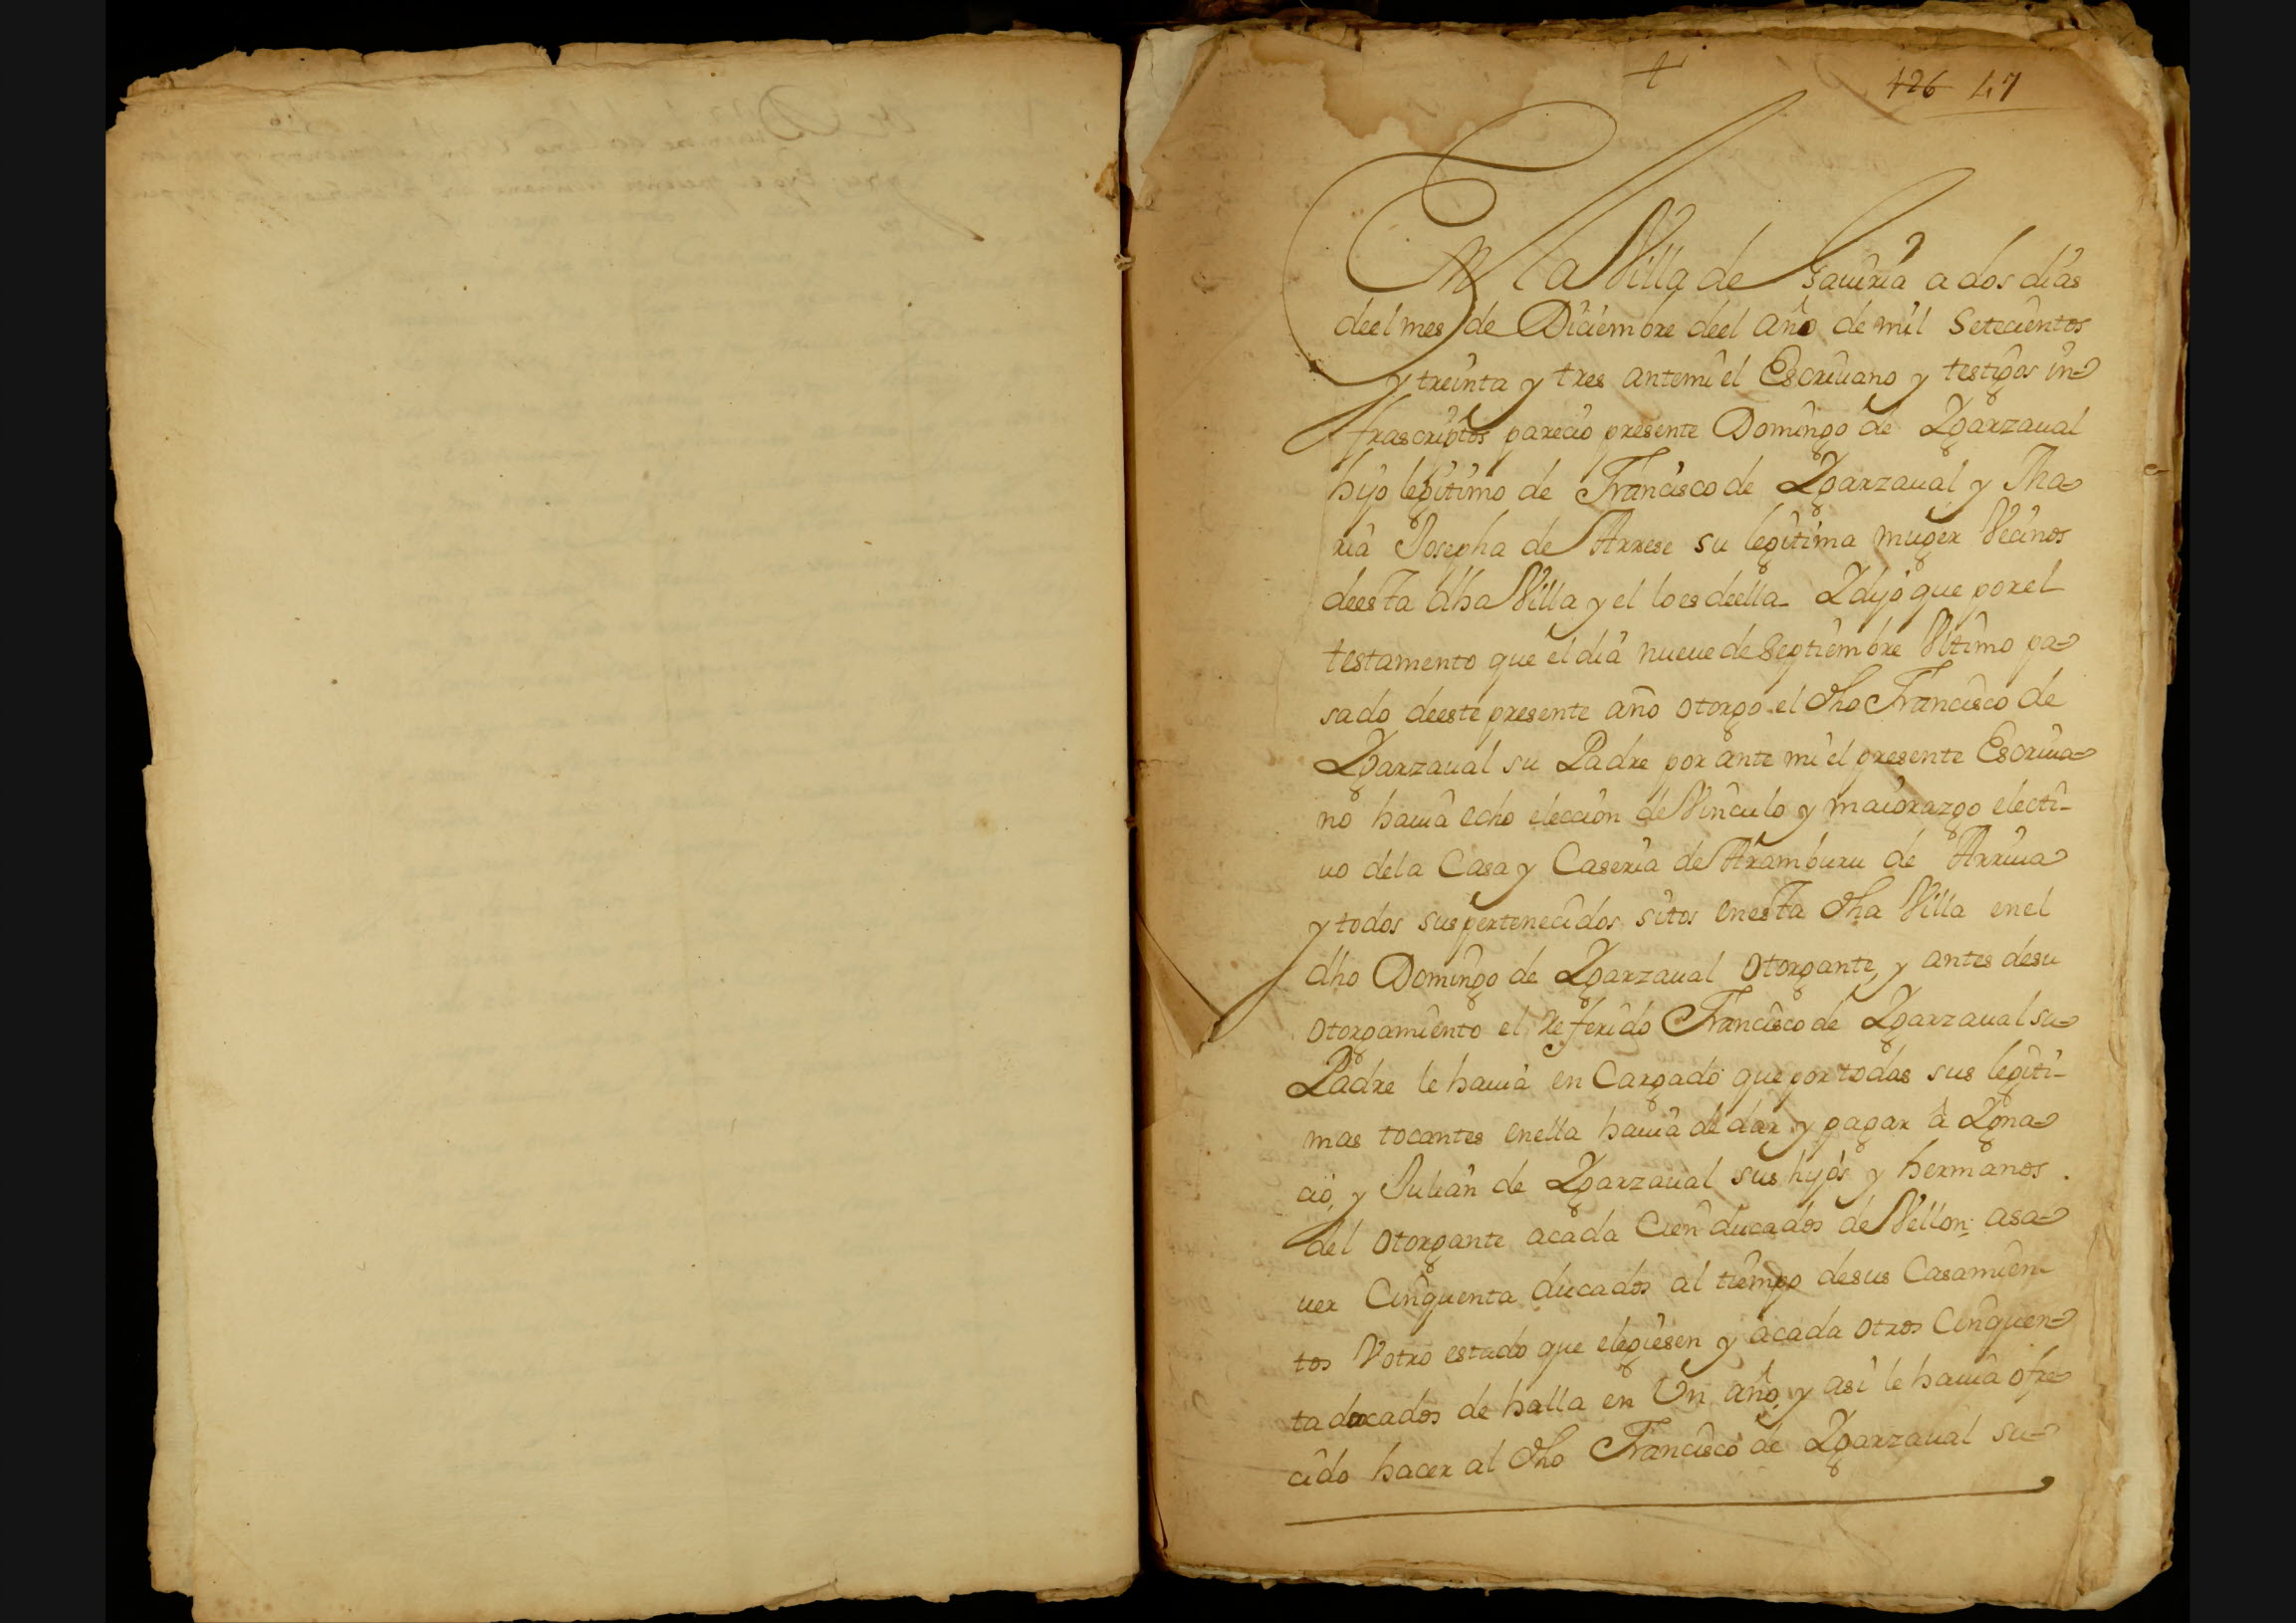 +
426 47
En la Villa de Gauiria a dos dias
deel mes de Diciembre deel año de mil Setecientos
y treinta y tres antemi el Escriuano y testigos in=
frascriptos parecio presente Domingo de Ygarzaual
hijo legitimo de Francisco de Ygarzaual y Ma=
ria Josepha de Arrese su legitima muger Vecinos
deesta dha Villa y el lo es deella Y dijo que por el
testamento que el dia nueue de Septiembre Vltimo pa=
sado deeste presente año otorgo el dho Francisco de
Ygarzaual su Padre por ante mi el presente Escriua=
no hauia echo eleccion de Vinculo y maiorazgo electi-
uo dela Casa y Caseria de Aramburu de Arriua
y todos sus pertenecidos sitos en esta dha Villa en el
dho Domingo de Ygarzaual otorgante, y antes desu
otorgamiento el referido Francisco de Ygarzaual su=
Padre le hauia en Cargado que por todas sus legiti-
mas tocantes en ella hauia de dar y pagar à Ygna=
cio, y Julian de Ygarzaual sus hijos y hermanos
del otorgante acada Cien ducados de Vellon: asa=
uer Cinquenta ducados al tiempo desus Casamien-
tos V otro estado que elegiesen y acada otros Cinquen=
ta ducados de halla en Vn año, y asi le hauia ofre=
cido hacer al dho Francisco de Ygarzaual su=